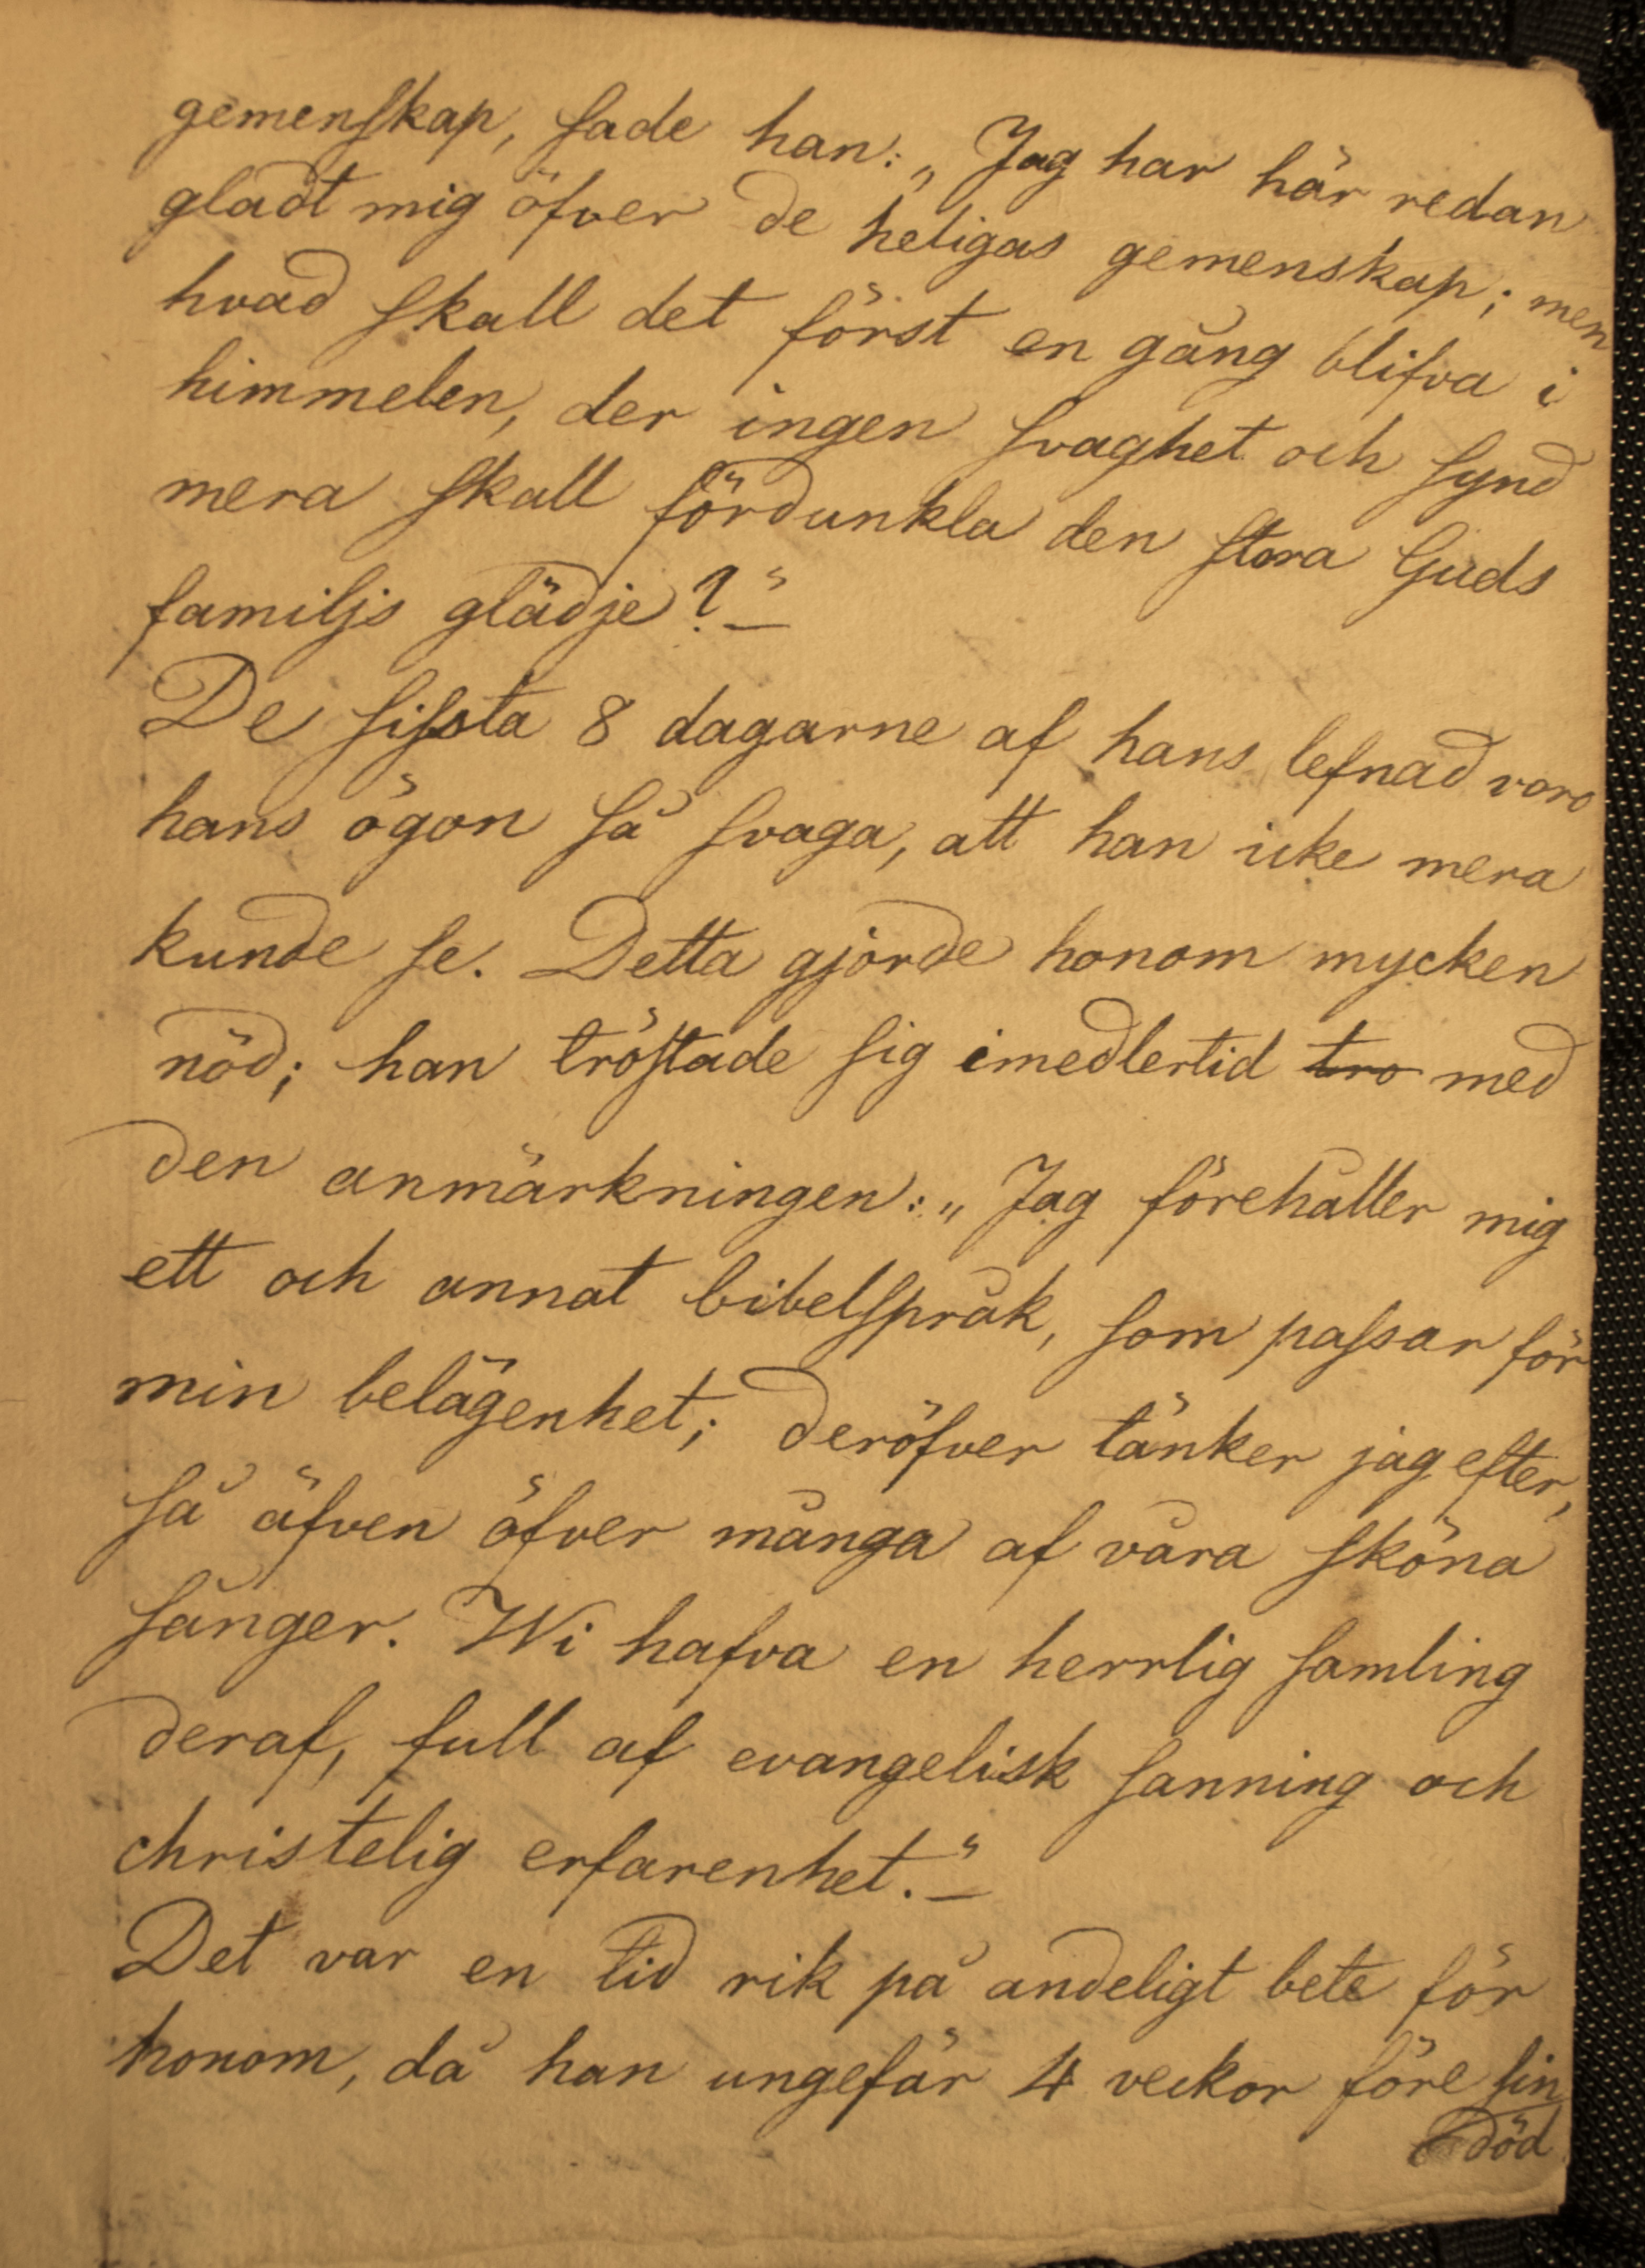 gemenskap, sade han: „Jag har här redan
gladt mig öfver de heligas gemenskap; men
hvad skall det först en gång blifva i
himmelen, der ingen svaghet och synd
mera skall fördunkla den stora Guds
familjs glädje?“ —
De sissta 8 dagarne af hans lefnad voro
hans ögon så svaga, att han icke mera
kunde se. Detta gjorde honom mycken
nöd; han tröstade sig imedlertid tro med
den anmärkningen: „Jag förehåller mig
ett och annat bibelspråk, som passar för
min belägenhet; deröfver tänker jag efter,
så äfven öfver många af våra sköna
sånger. Wi hafva en herrlig samling
deraf, full af evangelisk sanning och
christelig erfarenhet.“ —
Det var en tid rik på andeligt bete för
honom, då han ungefär 4 veckor före sin
död